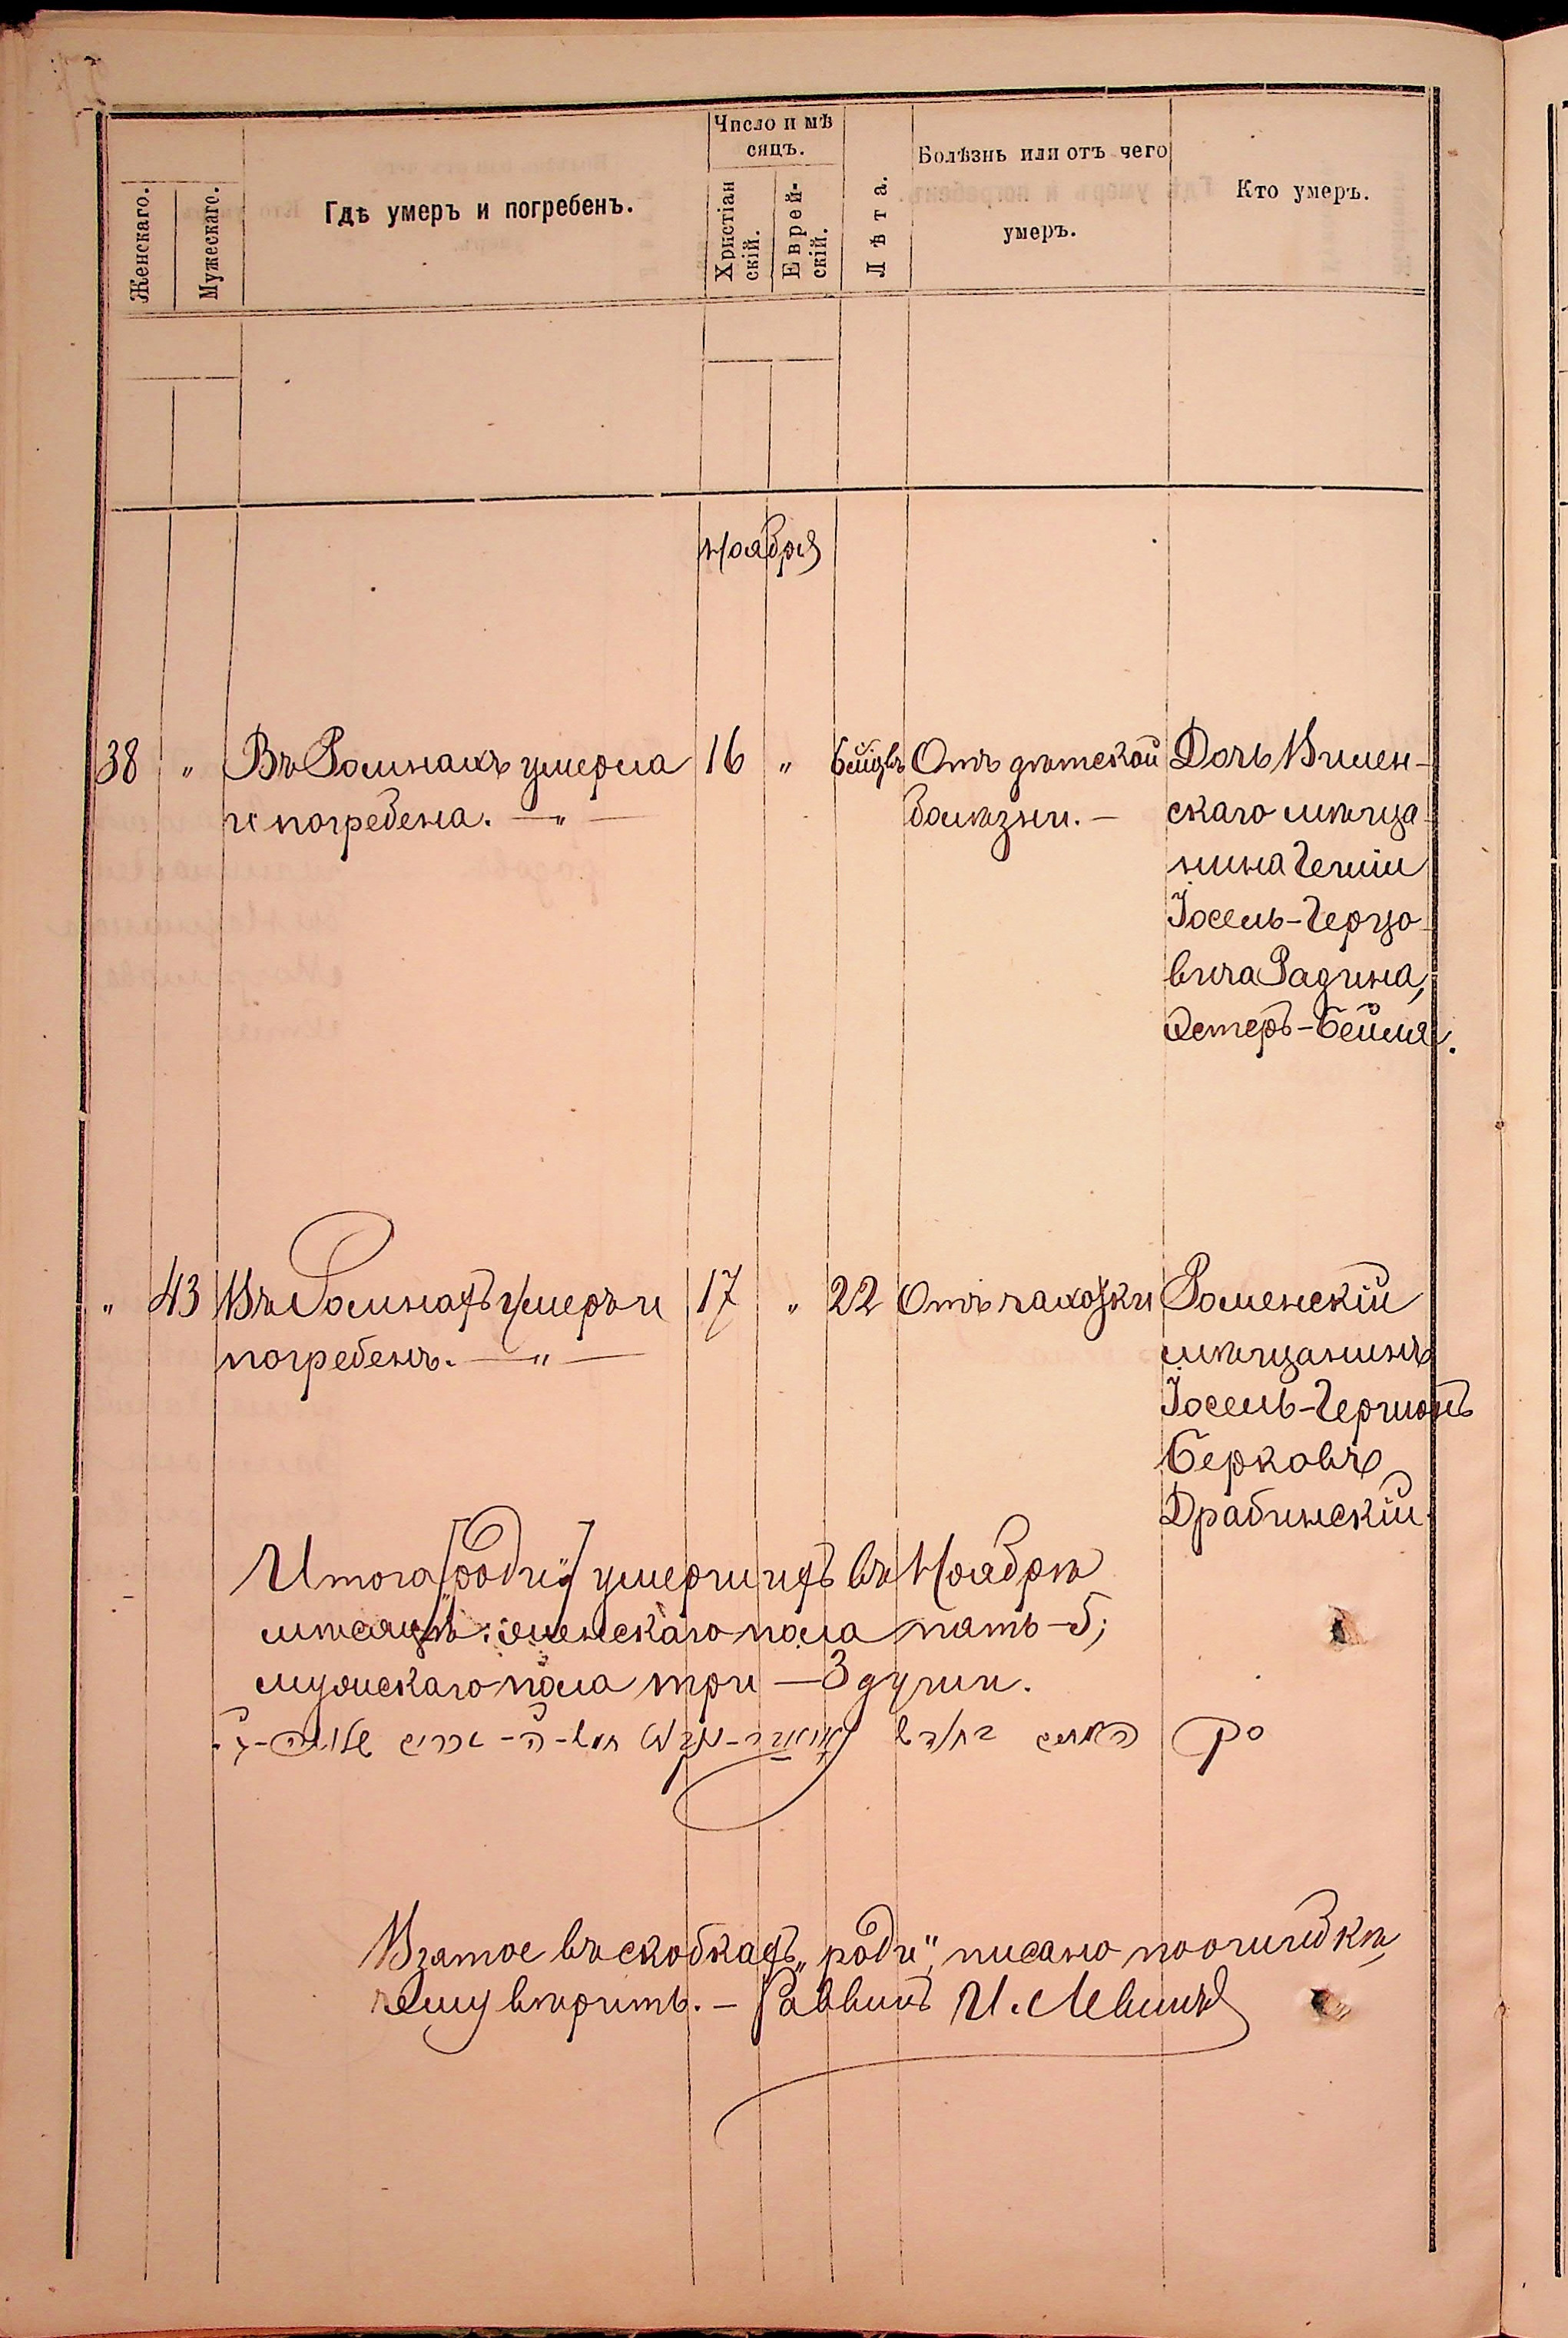 Число и мѣ
сяцъ.
Женскаго.
Мужескаго.
Гдѣ умеръ и погребенъ.
Христіан
скій.
Еврей-
скій.
Лѣта.
Болѣзнь или отъ чего
умеръ.
Кто умеръ.
Ноября
38 " Въ Ромнахъ умерла 16 " 6 мѣс Отъ дѣтской Дочь Вилен-
и погребена. —"— болѣзни. — скаго мѣща-
нина Гешіи
Іосель-Герцо-
вича Радина,
Эстеръ-Бейля.
" 43 Въ Ромнахъ умеръ и 17 " 22 Отъ чахотки Роменскій
погребенъ. —"— мѣщанинъ
Іосель-Гершонъ
Берковъ
Драбинскій.
Итого [роди] умершихъ въ Ноябрѣ
мѣсяцѣ: женскаго пола пять - 5;
мужескаго пола три — 3 души.
Взятое въ скобкахъ „роди", писано по ошибкѣ,
чему вѣрить. — Раввинъ И. Левинъ